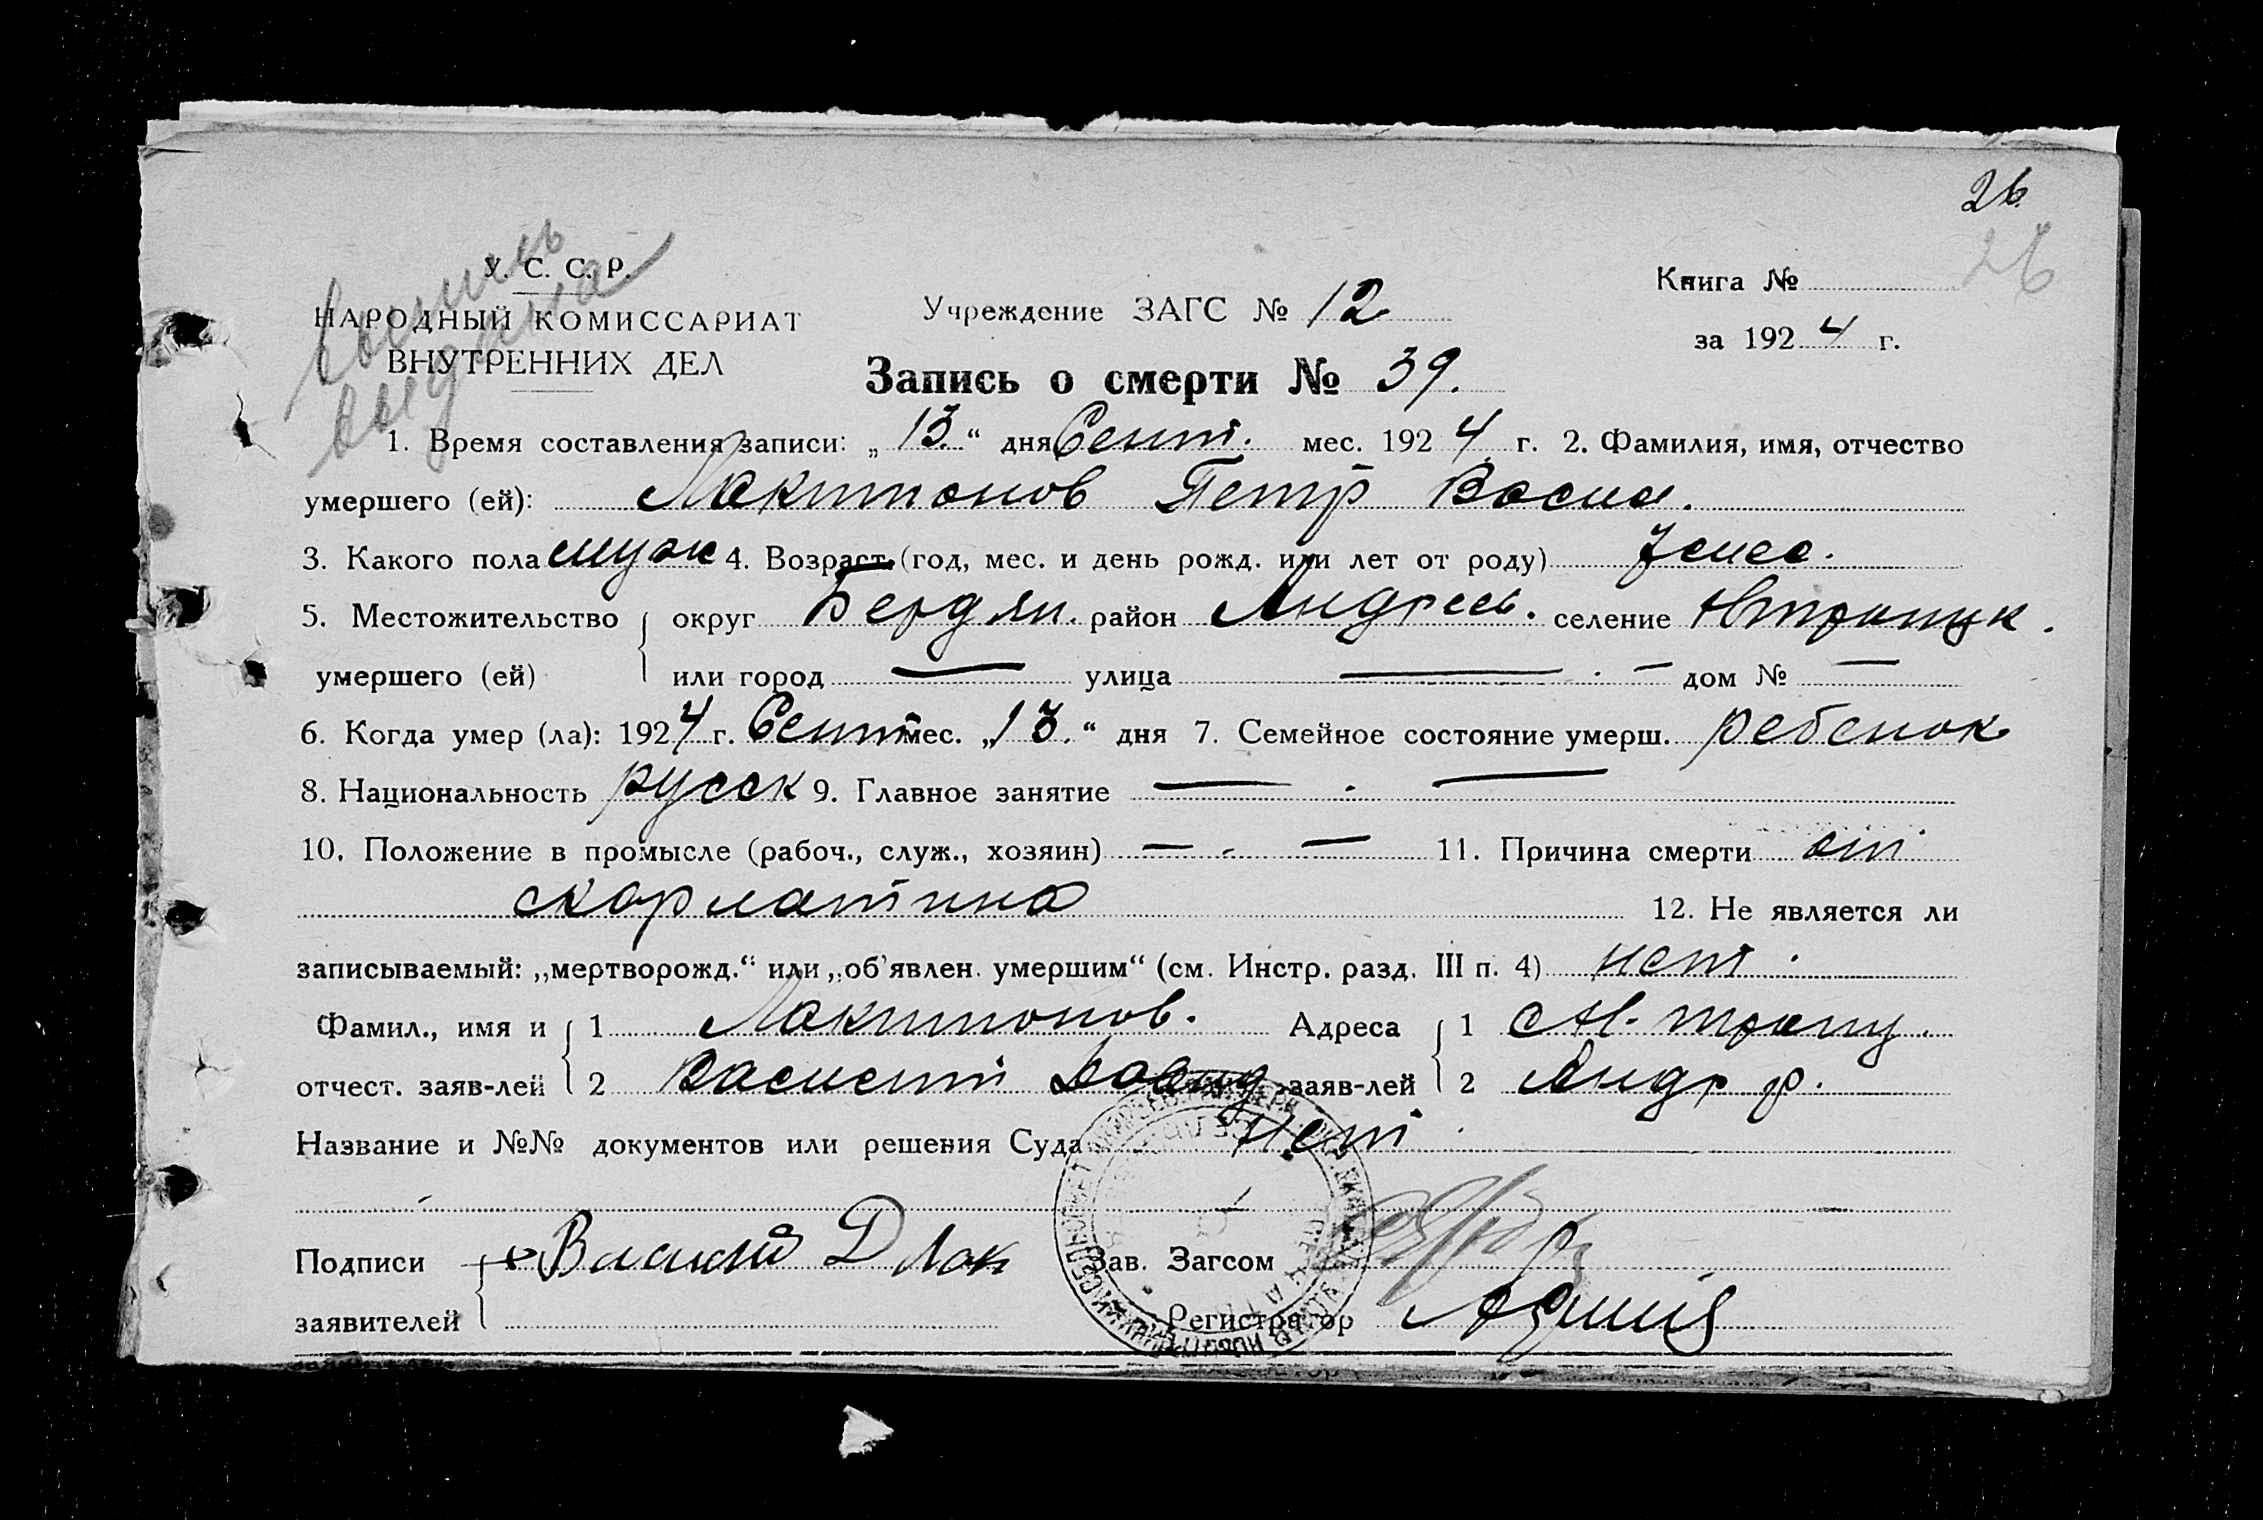 26.
26
выпись
выдана
У. С. С. Р.
НАРОДНЫЙ КОМИССАРИАТ
ВНУТРЕННИХ ДЕЛ
Учреждение ЗАГС № 12
Книга №
за 1924 г.
Запись о смерти № 39.
1. Время составления записи: „13.“ дня Сент. мес. 1924 г. 2. Фамилия, имя, отчество
умершего (ей): Лактионов Петр Васил.
3. Какого пола муж 4. Возраст (год, мес. и день рожд. или лет от роду) 7 мес.
5. Местожительство округ Бердян. район Андреев. селение
умершего (ей) или город — улица — . — дом № —
6. Когда умер (ла): 1924 г. Сент мес. „13.“ дня 7. Семейное состояние умерш. ребенок
8. Национальность русск 9. Главное занятие — . —
10. Положение в промысле (рабоч., служ., хозяин) — . — 11. Причина смерти от
скарлатина 12. Не является ли
записываемый: „мертворожд.“ или „об'явлен. умершим“ (см. Инстр. разд. III п. 4) нет.
Фамил., имя и 1 Лактионов. Адреса 1
отчест. заяв-лей 2 Василий заяв-лей 2 Андр р.
Название и №№ документов или решения Суда Нет
Подписи Василий Д Лак Зав. Загсом
заявителей Регистратор